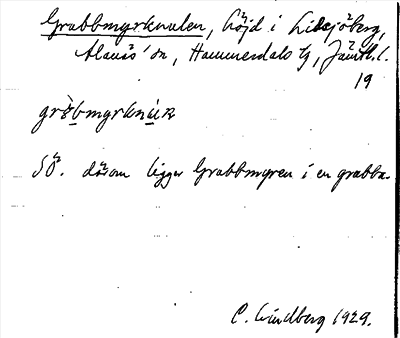 Grabbmyrknulen, höjd i Lidsjöberg,
Alanäs' sn, Hammerdals tg, Jämtl. l.
19
SÖ. därom ligger Grabbmyren i en grabba.
C. Lindberg 1929.